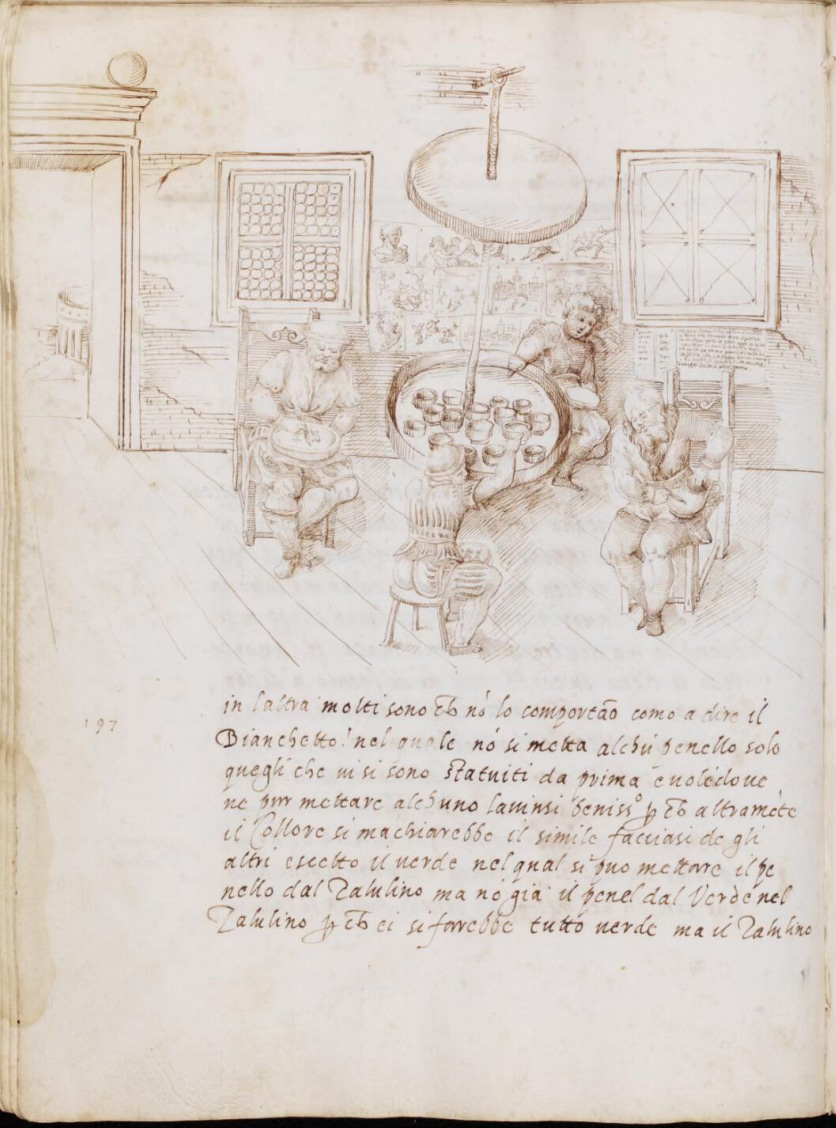 in laltra molti sono ch nō lo comportāo como a dire il
197
Bianchetto! nel quale nō si metta alchū penello solo
quegli che ui si sono statuiti da prima e uolēdoue
ne pur mettare alchuno lauinsi beniss⁰ p ch altramēte
il Collore si machiarebbe il simile facciasi de gli
altri ecetto il uerde nel qual si puo mettare il pe
nello dal Zalulino ma nō gia il penel dal Verde nel
Zalulino p ch ei si farrebbe tutto uerde ma il Zalulino